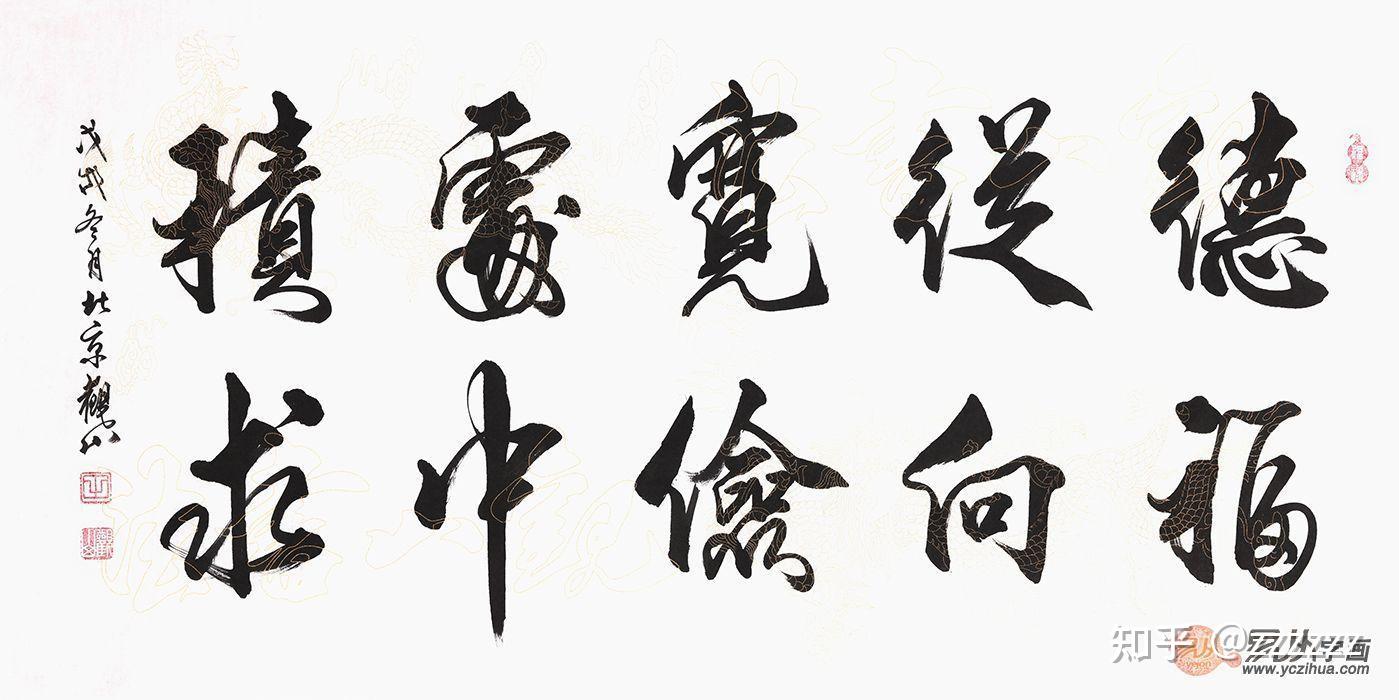 德從寬處積
福向儉中求
戊戌冬月北京觀山
知乎
易从字画
www.yczihua.com